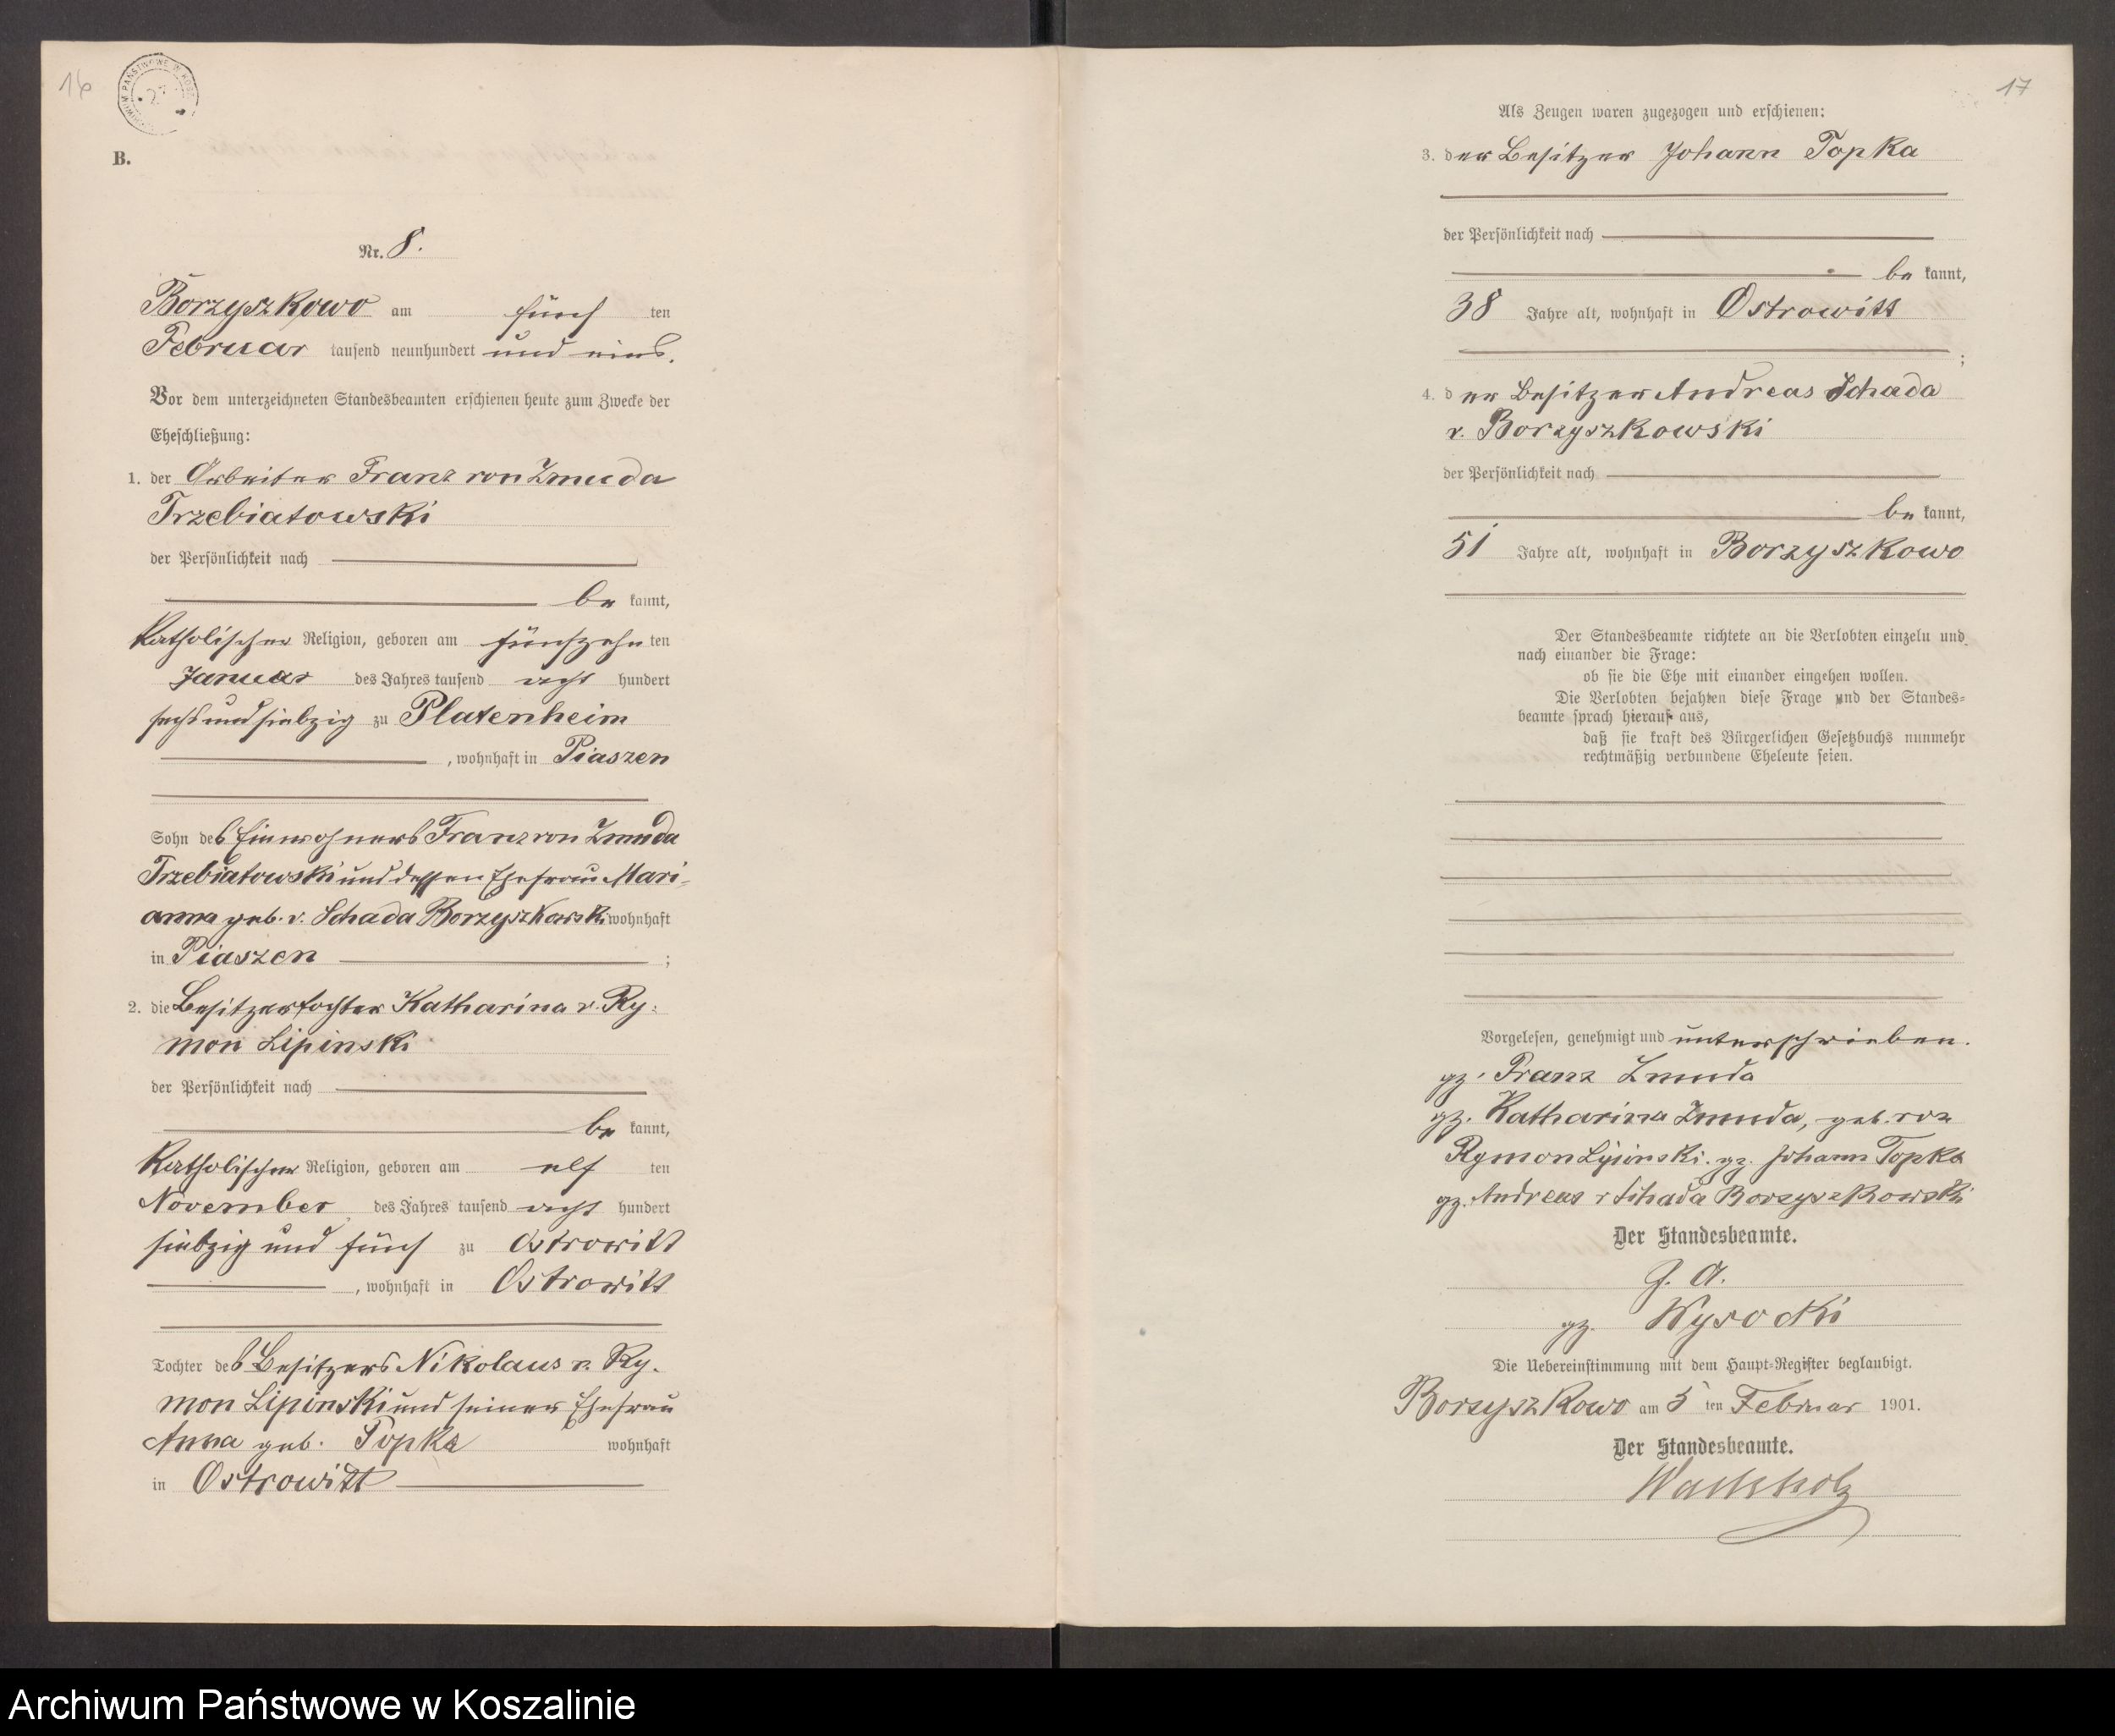 16
B.
Nr. 8.
Borzyszkowo am fünf ten
Februar tausend neunhundert und eins.
Vor dem unterzeichneten Standesbeamten erschienen heute zum Zwecke der
Eheschließung:
1. der Arbeiter Franz von Zmuda
Trzebiatowski
der Persönlichkeit nach
be kannt,
katholischer Religion, geboren am fünfzehn ten
Januar des Jahres tausend acht hundert
sechs und siebzig zu Platenheim
, wohnhaft in Piaszen
Sohn des Einwohners Franz von Zmuda
Trzebiatowski und dessen Ehefrau Mari-
anna geb. v. Schada Borzyszkowski wohnhaft
in Piaszen ;
2. die Besitzertochter Katharina v. Ry:
mon Lipinski
der Persönlichkeit nach
be kannt,
katholischer Religion, geboren am elf ten
November des Jahres tausend acht hundert
siebzig und fünf zu Ostrowitt
, wohnhaft in Ostrowitt
Tochter des Besitzers Nikolaus v. Ry.
mon Lipinski und seiner Ehefrau
Anna geb. Topka wohnhaft
in Ostrowitt
17
Als Zeugen waren zugezogen und erschienen:
3. der Besitzer Johann Topka
der Persönlichkeit nach
be kannt,
38 Jahre alt, wohnhaft in Ostrowitt
;
4. der Besitzer Andreas Schada
v. Borzyszkowski
der Persönlichkeit nach
be kannt,
51 Jahre alt, wohnhaft in Borzyszkowo
Der Standesbeamte richtete an die Verlobten einzeln und
nach einander die Frage:
ob sie die Ehe mit einander eingehen wollen.
Die Verlobten bejahten diese Frage und der Standes=
beamte sprach hierauf aus,
daß sie kraft des Bürgerlichen Gesetzbuchs nunmehr
rechtmäßig verbundene Eheleute seien.
Vorgelesen, genehmigt und unterschrieben.
gz. Franz Zmuda
gz. Katharina Zmuda, geb. von
Rymon Lipinski. gz. Johann Topka
gz. Andreas v Schada Borzyszkowski
Der Standesbeamte.
J. A.
gz. Wysocki
Die Uebereinstimmung mit dem Haupt-Register beglaubigt.
Borzyszkowo am 5 ten Februar 1901.
Der Standesbeamte.
Archiwum Państwowe w Koszalinie